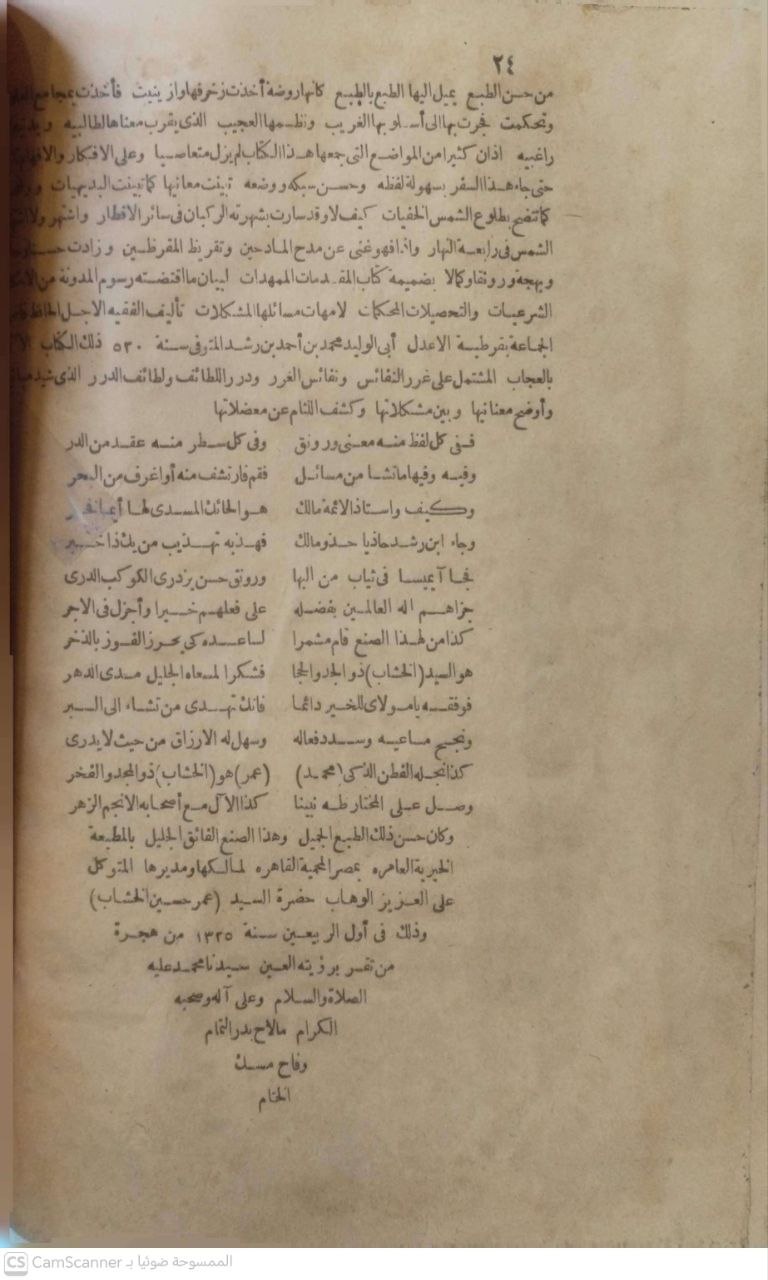 ٢٤
من حسن الطبع يميل اليها الطبع بالطبع كأنها روضة أخذت زخرفها وازينت فأخذت بمجامع
وتحكمت فجرت بها الى أسلوبها الغريب ونظمها العجيب الذى يقرب معناها لطالبيه
راغبيه اذ ان كثيرا من المواضع التى جمعها هذا الكتاب لم يزل متعاصيا وعلى الافكار
حتى جاء هذا السفر بسهولة لفظه وحسن سبكه ووضعه تبينت معانيها كما تبينت البديهيات
كما تتضح بطلوع الشمس الخفيات كيف لا وقد سارت بشهرته الركبان فى سائر الاقطار واشتهر ولا
الشمس فى رابعة النهار واذا فهو غنى عن مدح المادحين وتقريظ المقرظين وزادت
وبهجة ورونقا وكمالا بضميمة كتاب المقدمات الممهدات لبيان ما اقتضته رسوم المدونة من
الشرعيات والتحصيلات المحكمات لامهات مسائلها المشكلات تأليف الفقيه الاجل الحافظ
الجماعة بقرطبة الاعدل أبى الوليد محمد بن أحمد بن رشد المتوفى سنة ٥٣٠ ذلك الكتاب
بالعجاب المشتمل على غرر النفائس ونفائس الغرر ودرر اللطائف ولطائف الدرر الذى شيد
وأوضح معانيها وبين مشكلاتها وكشف اللثام عن معضلاتها
ففى كل لفظ منه معنى ورونق وفى كل سطر منه عقد من الدر
وفيه وفيها ما تشا من مسائل فقم فارتشف منه أو اغرف من البحر
وكيف واستاذ الائمة مالك هو الحائك المسدى لها
وجاء ابن رشد حاذيا حذو مالك فهذبه تهذيب من يك ذا
فجا آ يميسا فى ثياب من البها ورونق حسن يزدرى الكوكب الدرى
جزاهم اله العالمين بفضله على فعلهم خيرا وأجزل فى الاجر
كذا من لهذا الصنع قام مشمرا لساعده كى يحرز الفوز بالذخر
هو السيد (الخشاب) ذو الجد والحجا فشكرا لمسعاه الجليل مدى الدهر
فوفقه يا مولاى للخير دائما فانك تهدى من تشاء الى البر
ونجح مساعيه وسدد فعاله وسهل له الارزاق من حيث لا يدرى
كذا نجله الفطن الذكى (محمد) (عمر) هو (الخشاب) ذو المجد والفخر
وصل على المختار طه نبينا كذا الآل مع أصحابه الانجم الزهر
وكان حسن ذلك الطبع الجميل وهذا الصنع الفائق الجليل بالمطبعة
الخيرية العامره بمصر المحمية القاهره لمالكها ومديرها المتوكل
على العزيز الوهاب حضرة السيد (عمر حسين الخشاب)
وذلك فى أول الربيعين سنة ١٣٢٥ من هجرة
من تقر برؤيته العين سيدنا محمد عليه
الصلاة والسلام وعلى آله وصحبه
الكرام ما لاح بدر التمام
وفاح مسك
الختام
CS CamScanner الممسوحة ضوئيا بـ